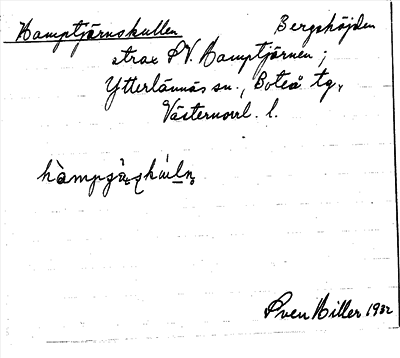 Kamptjärnskullen Bergshöjden
strax SV. Kamptjärnen;
Ytterlännäs sn., Boteå tg,
Västernorrl. l.
Sven Hiller 1932